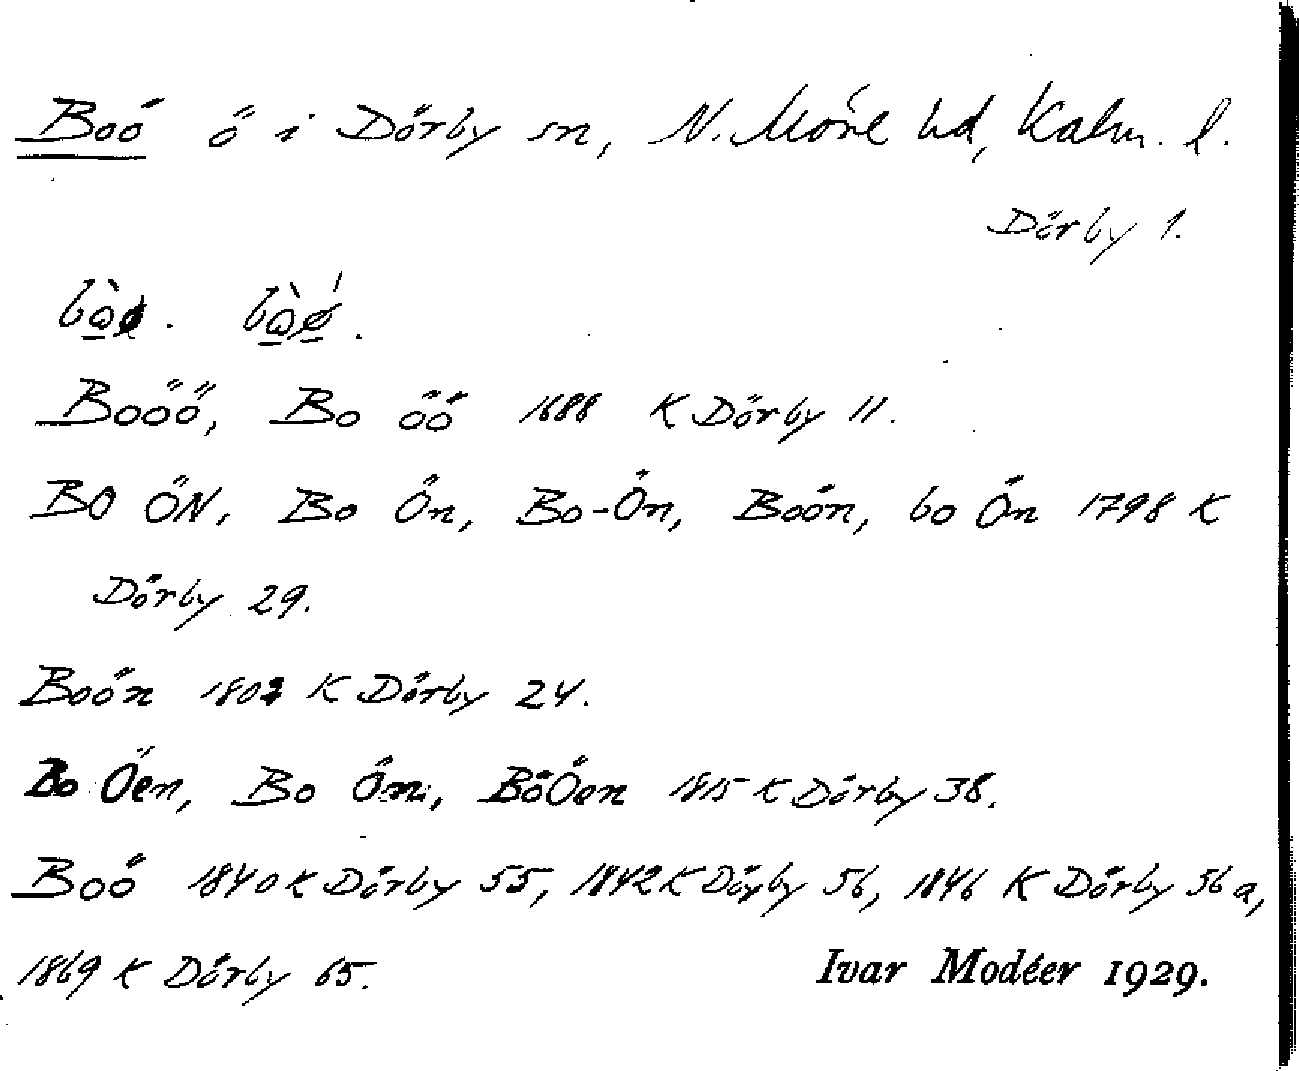 Boö ö i Dörby sn, N. Möre hd, Kalm. l.
Dörby 1.
Booöö, Bo öö 1688 K Dörby 11.
BO ÖN, Bo Ön, Bo-Ön, Boön, bo Ön 1798 K
Dörby 29.
Boön 1802 K Dörby 24.
Bo Öen, Bo Ön, BoÖen 1815 K Dörby 38.
Boö 1840 K Dörby 55, 1842 K Dörby 56, 1846 K Dörby 56a,
1869 K Dörby 65. Ivar Modéer 1929.